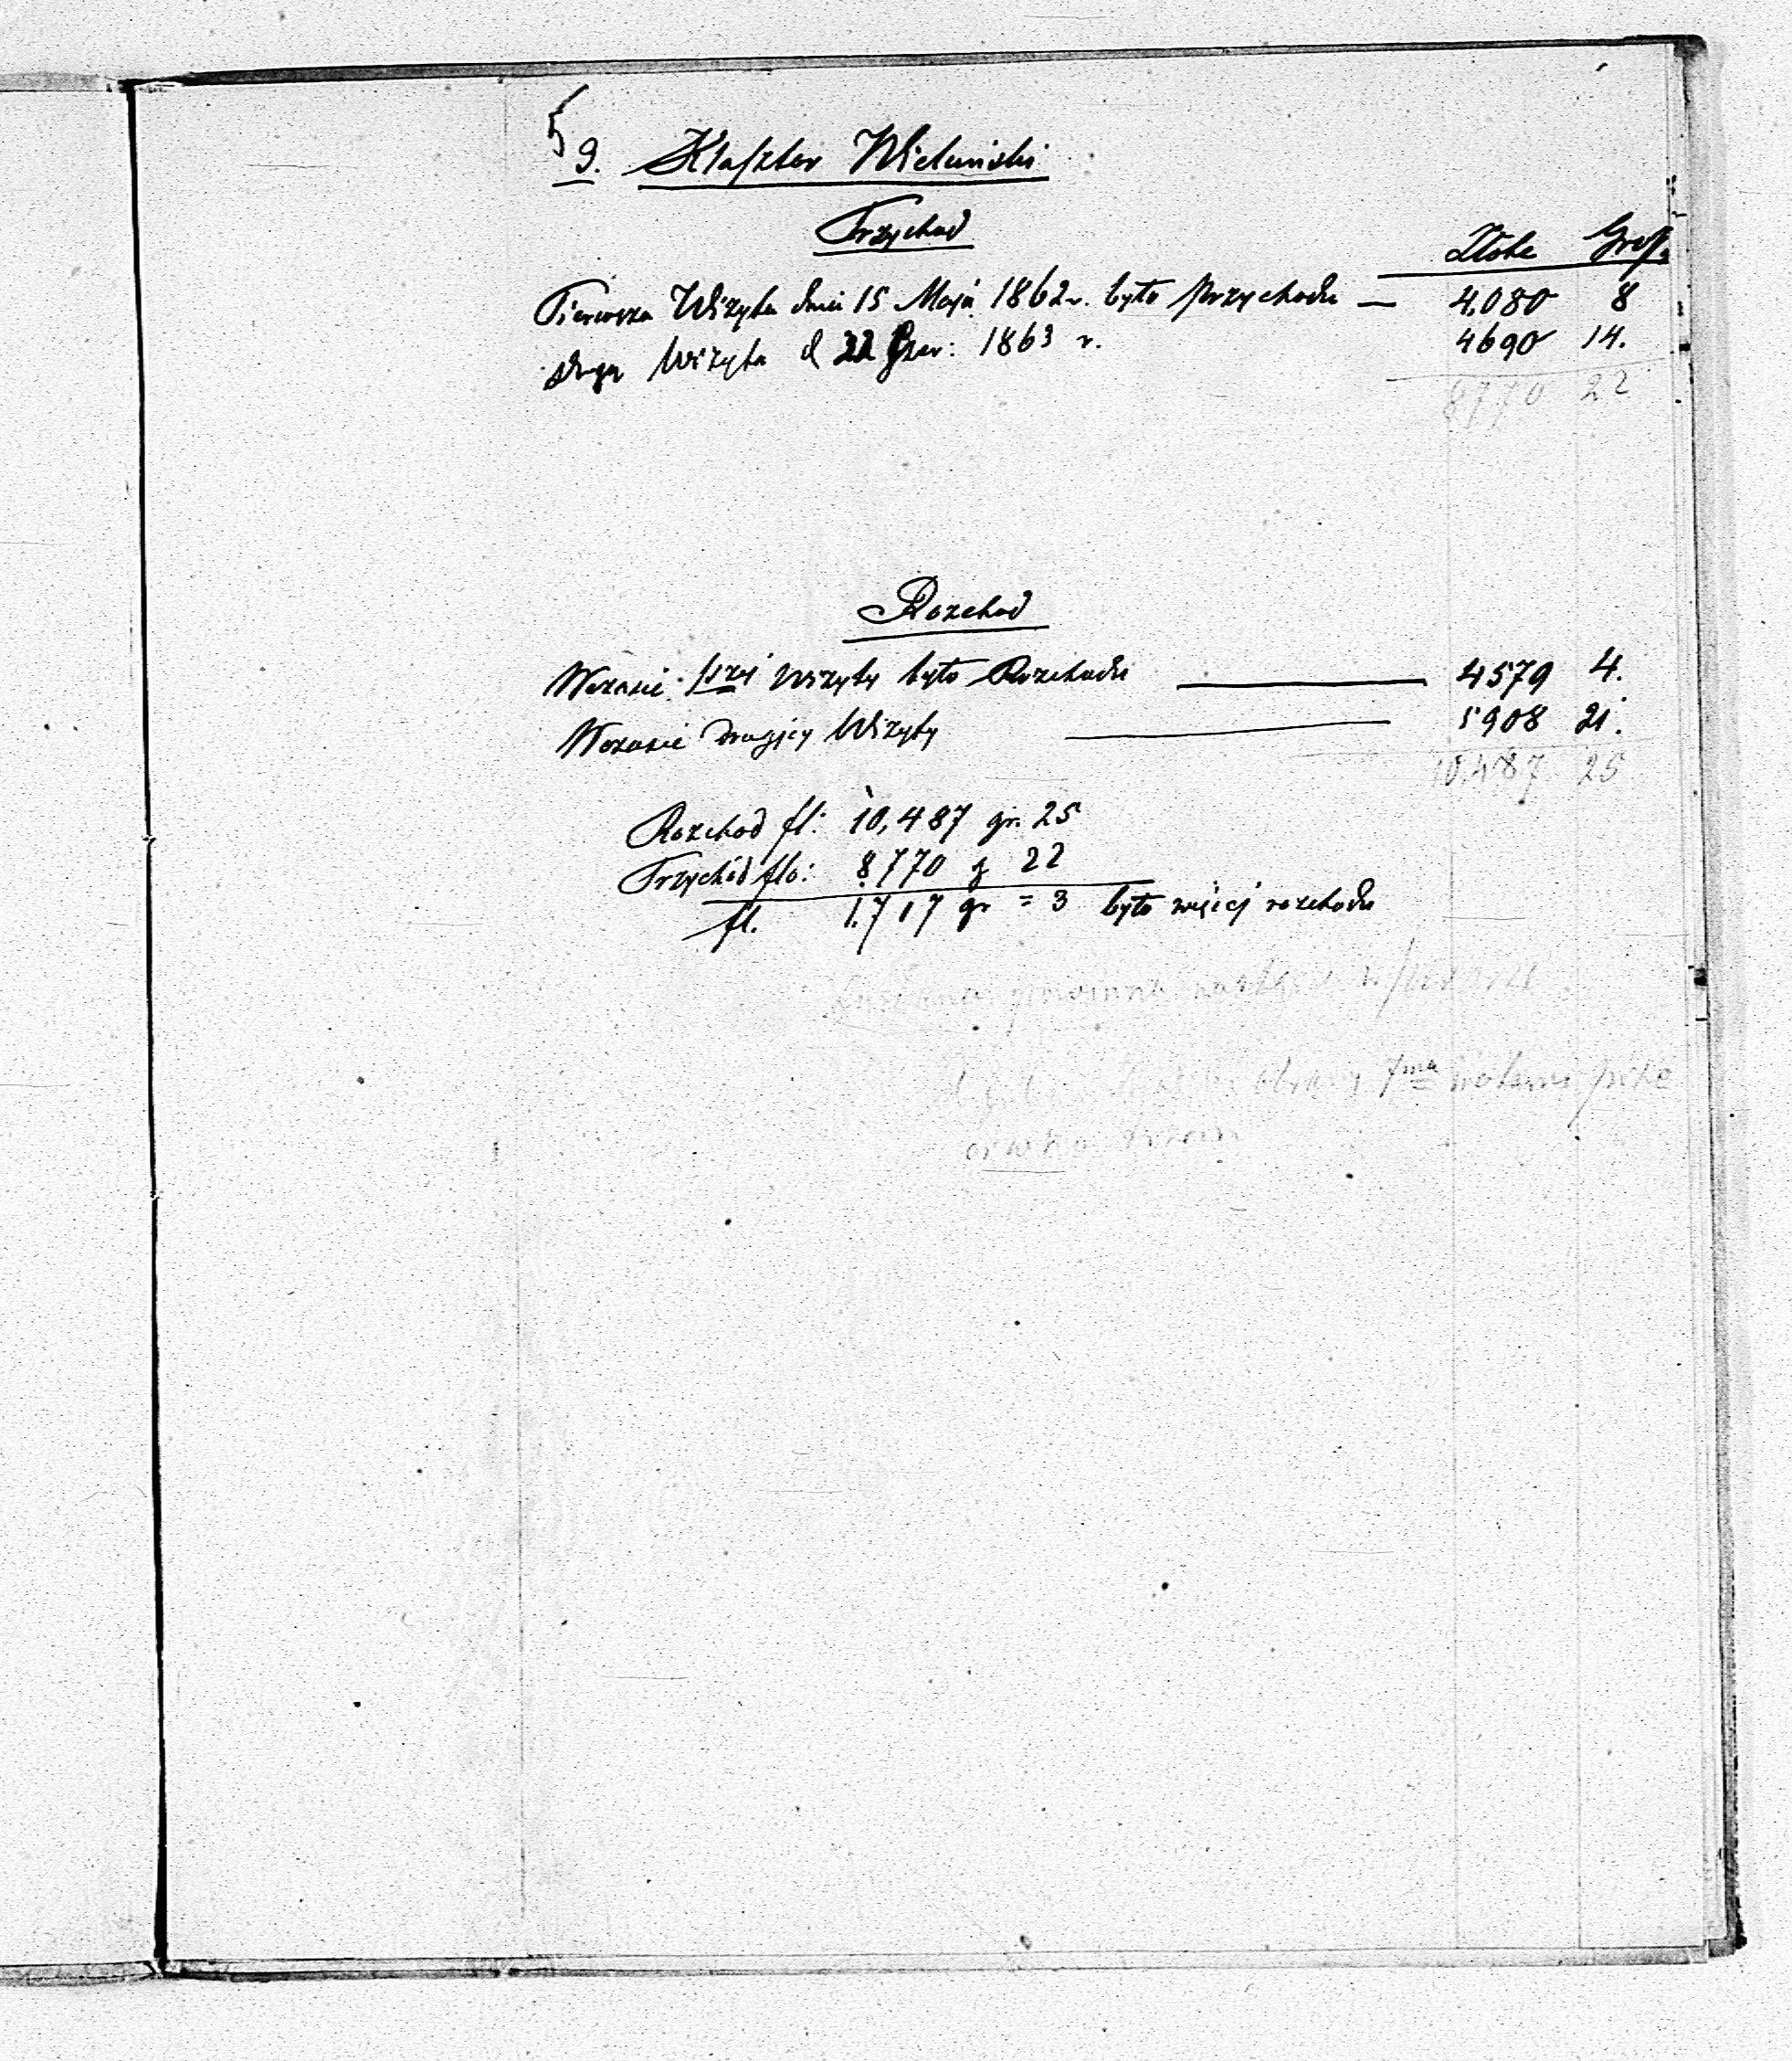 5
9. Klasztor Wieluński
Przychod
Złote Grosz.
Pierwsza Wizyta dnia 15 Maja 1862 r. było przychodu — 4,080 8
druga Wizyta d 22 Czer: 1863 r. 4690 14.
8770 22
Rozchod
Wczasie 1szej Wizyty było Rozchodu — 4579 4.
Wczasie drugiej Wizyty — 5908 21.
10,487 25
Rozchod fl: 10,487 gr. 25
Przychód flo: 8,770 g 22
fl. 1.717 gr = 3 było więcej rozchodu
powinna
7ma